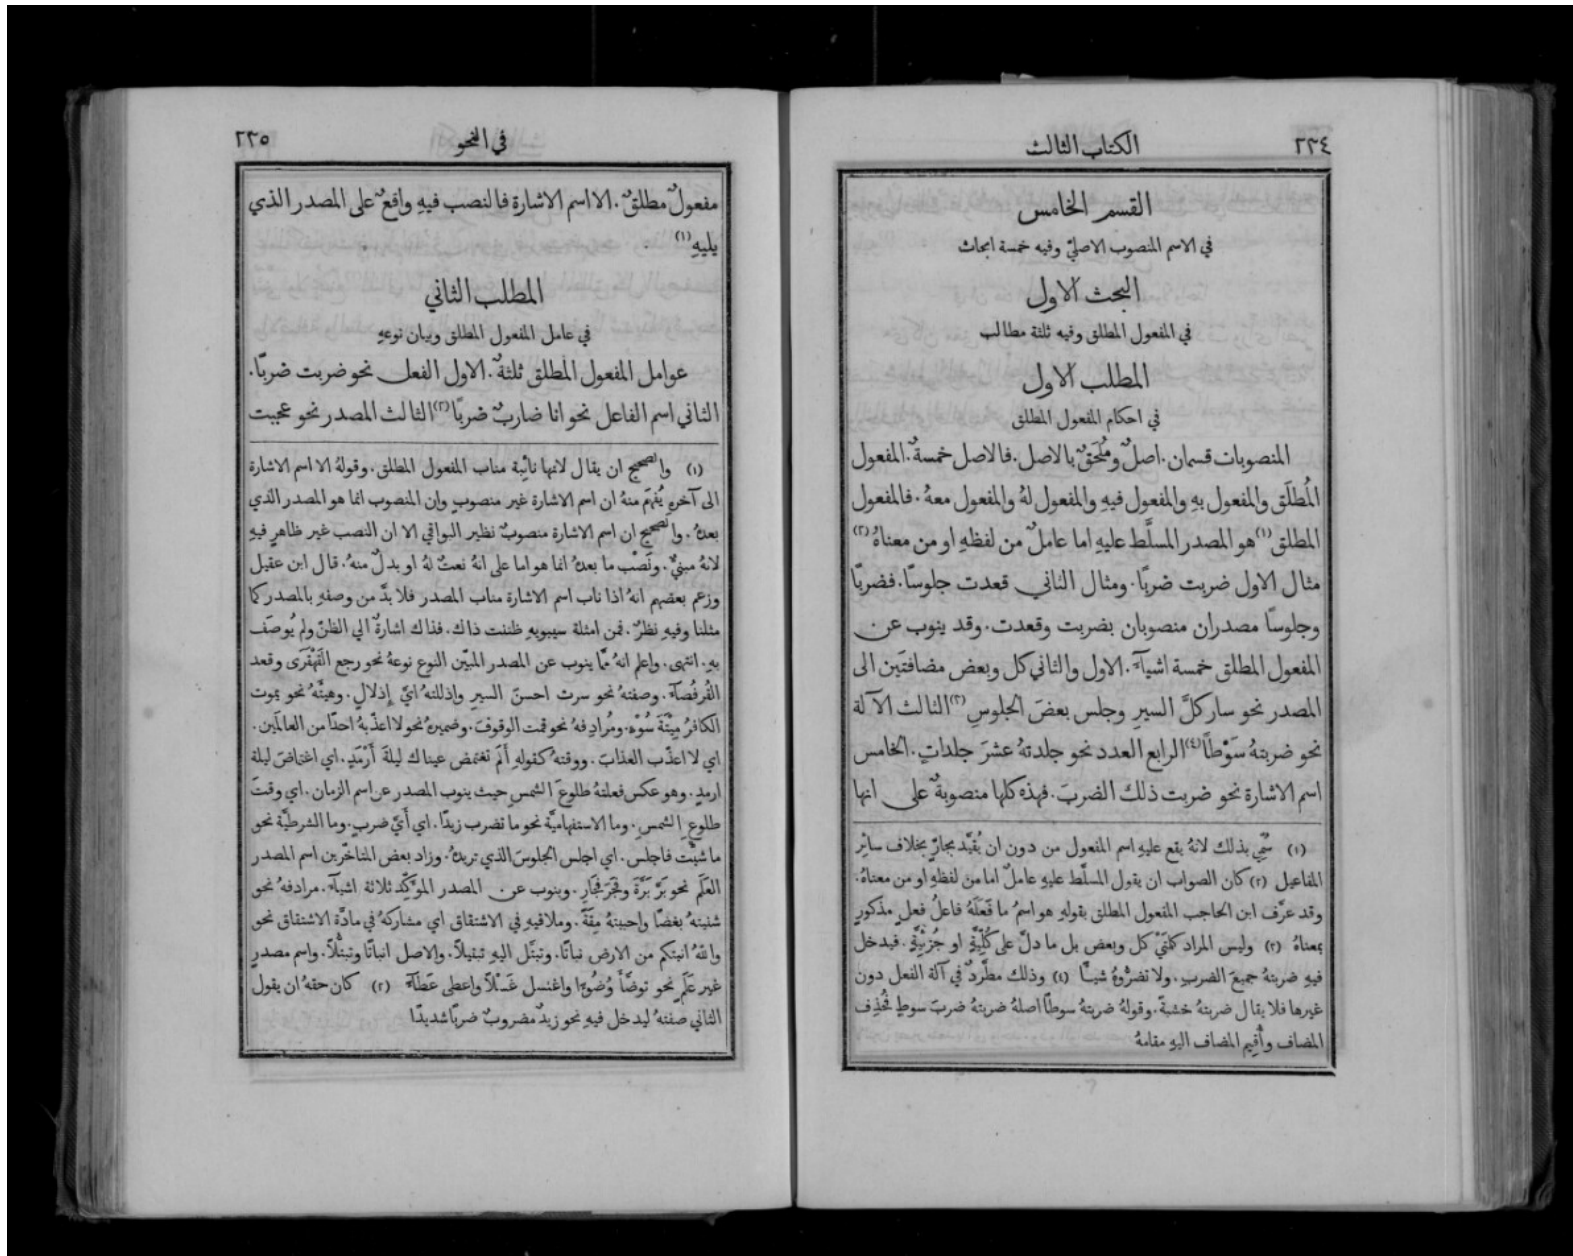 ٢٣٤
الكتاب الثالث
القسم الخامس
في الاسم المنصوب الاصليّ وفيه خمسة ابحاث
البحث الاول
في المفعول المطلق وفيه ثلثة مطالب
المطلب الاول
في احكام المفعول المطلق
المنصوبات قسمان. اصلٌ ومُلحَقٌ بالاصل. فالاصل خمسةٌ. المفعول
المُطلَق والمفعول بهِ والمفعول فيهِ والمفعول لهُ والمفعول معهُ. فالمفعول
المطلق (١) هو المصدر المسلَّط عليهِ اما عاملٌ من لفظهِ او من معناهُ (٢)
مثال الاول ضربت ضربًا. ومثال الثاني قعدت جلوسًا. فضربًا
وجلوسًا مصدران منصوبان بضربت وقعدت. وقد ينوب عن
المفعول المطلق خمسة اشيآءَ. الاول والثاني كل وبعض مضافتَين الى
المصدر نحو سار كلَّ السيرِ وجلس بعضَ الجلوسِ (٣) الثالث الآلة
نحو ضربتهُ سَوْطًا (٤) الرابع العدد نحو جلدتهُ عشرَ جلداتٍ. الخامس
اسم الاشارة نحو ضربت ذلك الضربَ. فهذه كلها منصوبةٌ على انها
(١) سُمِّي بذلك لانهُ يقع عليهِ اسم المفعول من دون ان يُقيَّد بجارٍّ بخلاف سائِر
المفاعيل (٢) كان الصواب ان يقول المسلَّط عليهِ عاملٌ اما من لفظهِ او من معناهُ.
وقد عرَّف ابن الحاجب المفعول المطلق بقولهِ هو اسمُ ما فَعَلَهُ فاعلُ فعلٍ مذكورٍ
بمعناهُ (٣) وليس المراد كلمتَيْ كل وبعض بل ما دلَّ على كُلِّيَّةٍ او جُزئِيَّةٍ. فيدخل
فيهِ ضربتهُ جميعَ الضربِ. ولا تضرُّوهُ شيئًا (٤) وذلك مطَّردٌ في آلة الفعل دون
غيرها فلا يقال ضربتهُ خشبةً. وقولهُ ضربتهُ سوطًا اصلهُ ضربتهُ ضربَ سوطٍ فحُذِف
المضاف وأُقِيم المضاف اليهِ مقامهُ
في النحو
٢٣٥
مفعولٌ مطلقٌ. الا اسم الاشارة فالنصب فيهِ واقعٌ على المصدر الذي
يليهِ (١)
المطلب الثاني
في عامل المفعول المطلق وبيان نوعهِ
عوامل المفعول المطلق ثلثةٌ. الاول الفعل نحو ضربت ضربًا.
الثاني اسم الفاعل نحو انا ضاربٌ ضربًا (٢) الثالث المصدر نحو عجبت
(١) والصحيح ان يقال لانها نائِبة مناب المفعول المطلق. وقولهُ الا اسم الاشارة
الى آخرهِ يُفهَم منهُ ان اسم الاشارة غير منصوبٍ وان المنصوب انما هو المصدر الذي
بعدهُ. والصحيح ان اسم الاشارة منصوبٌ نظير البواقي الا ان النصب غير ظاهرٍ فيهِ
لانهُ مبنيٌّ. ونَصْب ما بعدهُ انما هو اما على انهُ نعتٌ لهُ او بدلٌ منهُ. قال ابن عقيل
وزعم بعضهم انهُ اذا ناب اسم الاشارة مناب المصدر فلا بدَّ من وصفهِ بالمصدر كما
مثلنا وفيهِ نظرٌ. فمن امثلة سيبويهِ ظننت ذاك. فذاك اشارةٌ الى الظنّ ولم يُوصَف
بهِ. انتهى. واعلم انهُ ممَّا ينوب عن المصدر المبيّن النوع نوعهُ نحو رجع القَهْقَرَى وقعد
القُرفُصآءَ. وصفتهُ نحو سرت احسنَ السيرِ واذللتهُ ايَّ إِذلالٍ. وهيئَتهُ نحو يموت
الكافرُ مِيتَةَ سُوءٍ. ومُرادِفهُ نحو قمت الوقوفَ. وضميرهُ نحو لا اعذّبهُ احدًا من العالمين.
اي لا اعذّب العذابَ. ووقتهُ كقولهِ أَلم تغتمض عيناك ليلةَ أَرْمَدٍ. اي اغتماضَ ليلة
ارمدٍ. وهو عكس فعلتهُ طلوعَ الشمسِ حيث ينوب المصدر عن اسم الزمان. اي وقتَ
طلوعِ الشمسِ. وما الاستفهاميَّة نحو ما تضرب زيدًا. اي أَيَّ ضربٍ. وما الشرطيَّة نحو
ما شئْت فاجلس. اي اجلس الجلوسَ الذي تريدهُ. وزاد بعض المتاخّرين اسم المصدر
العَلَم نحو بَرَّ بَرَّةَ وفَجَرَ فَجَارِ. وينوب عن المصدر الموَّكّد ثلاثة اشيآءَ. مرادفهُ نحو
شنيتهُ بغضًا واحببتهُ مِقَةً. وملاقيهِ في الاشتقاق اي مشاركهُ في مادَّة الاشتقاق نحو
واللهُ انبتكم من الارض نباتًا. وتبتَّل اليهِ تبتيلاً. والاصل انباتًا وتبتُّلاً. واسم مصدرٍ
غير عَلَمٍ نحو توضَّأَ وُضُوءًا واغتسل غَسْلاً واعطى عَطآءً (٢) كان حقهُ ان يقول
الثاني صفتهُ ليدخل فيهِ نحو زيدٌ مضروبٌ ضربًا شديدًا